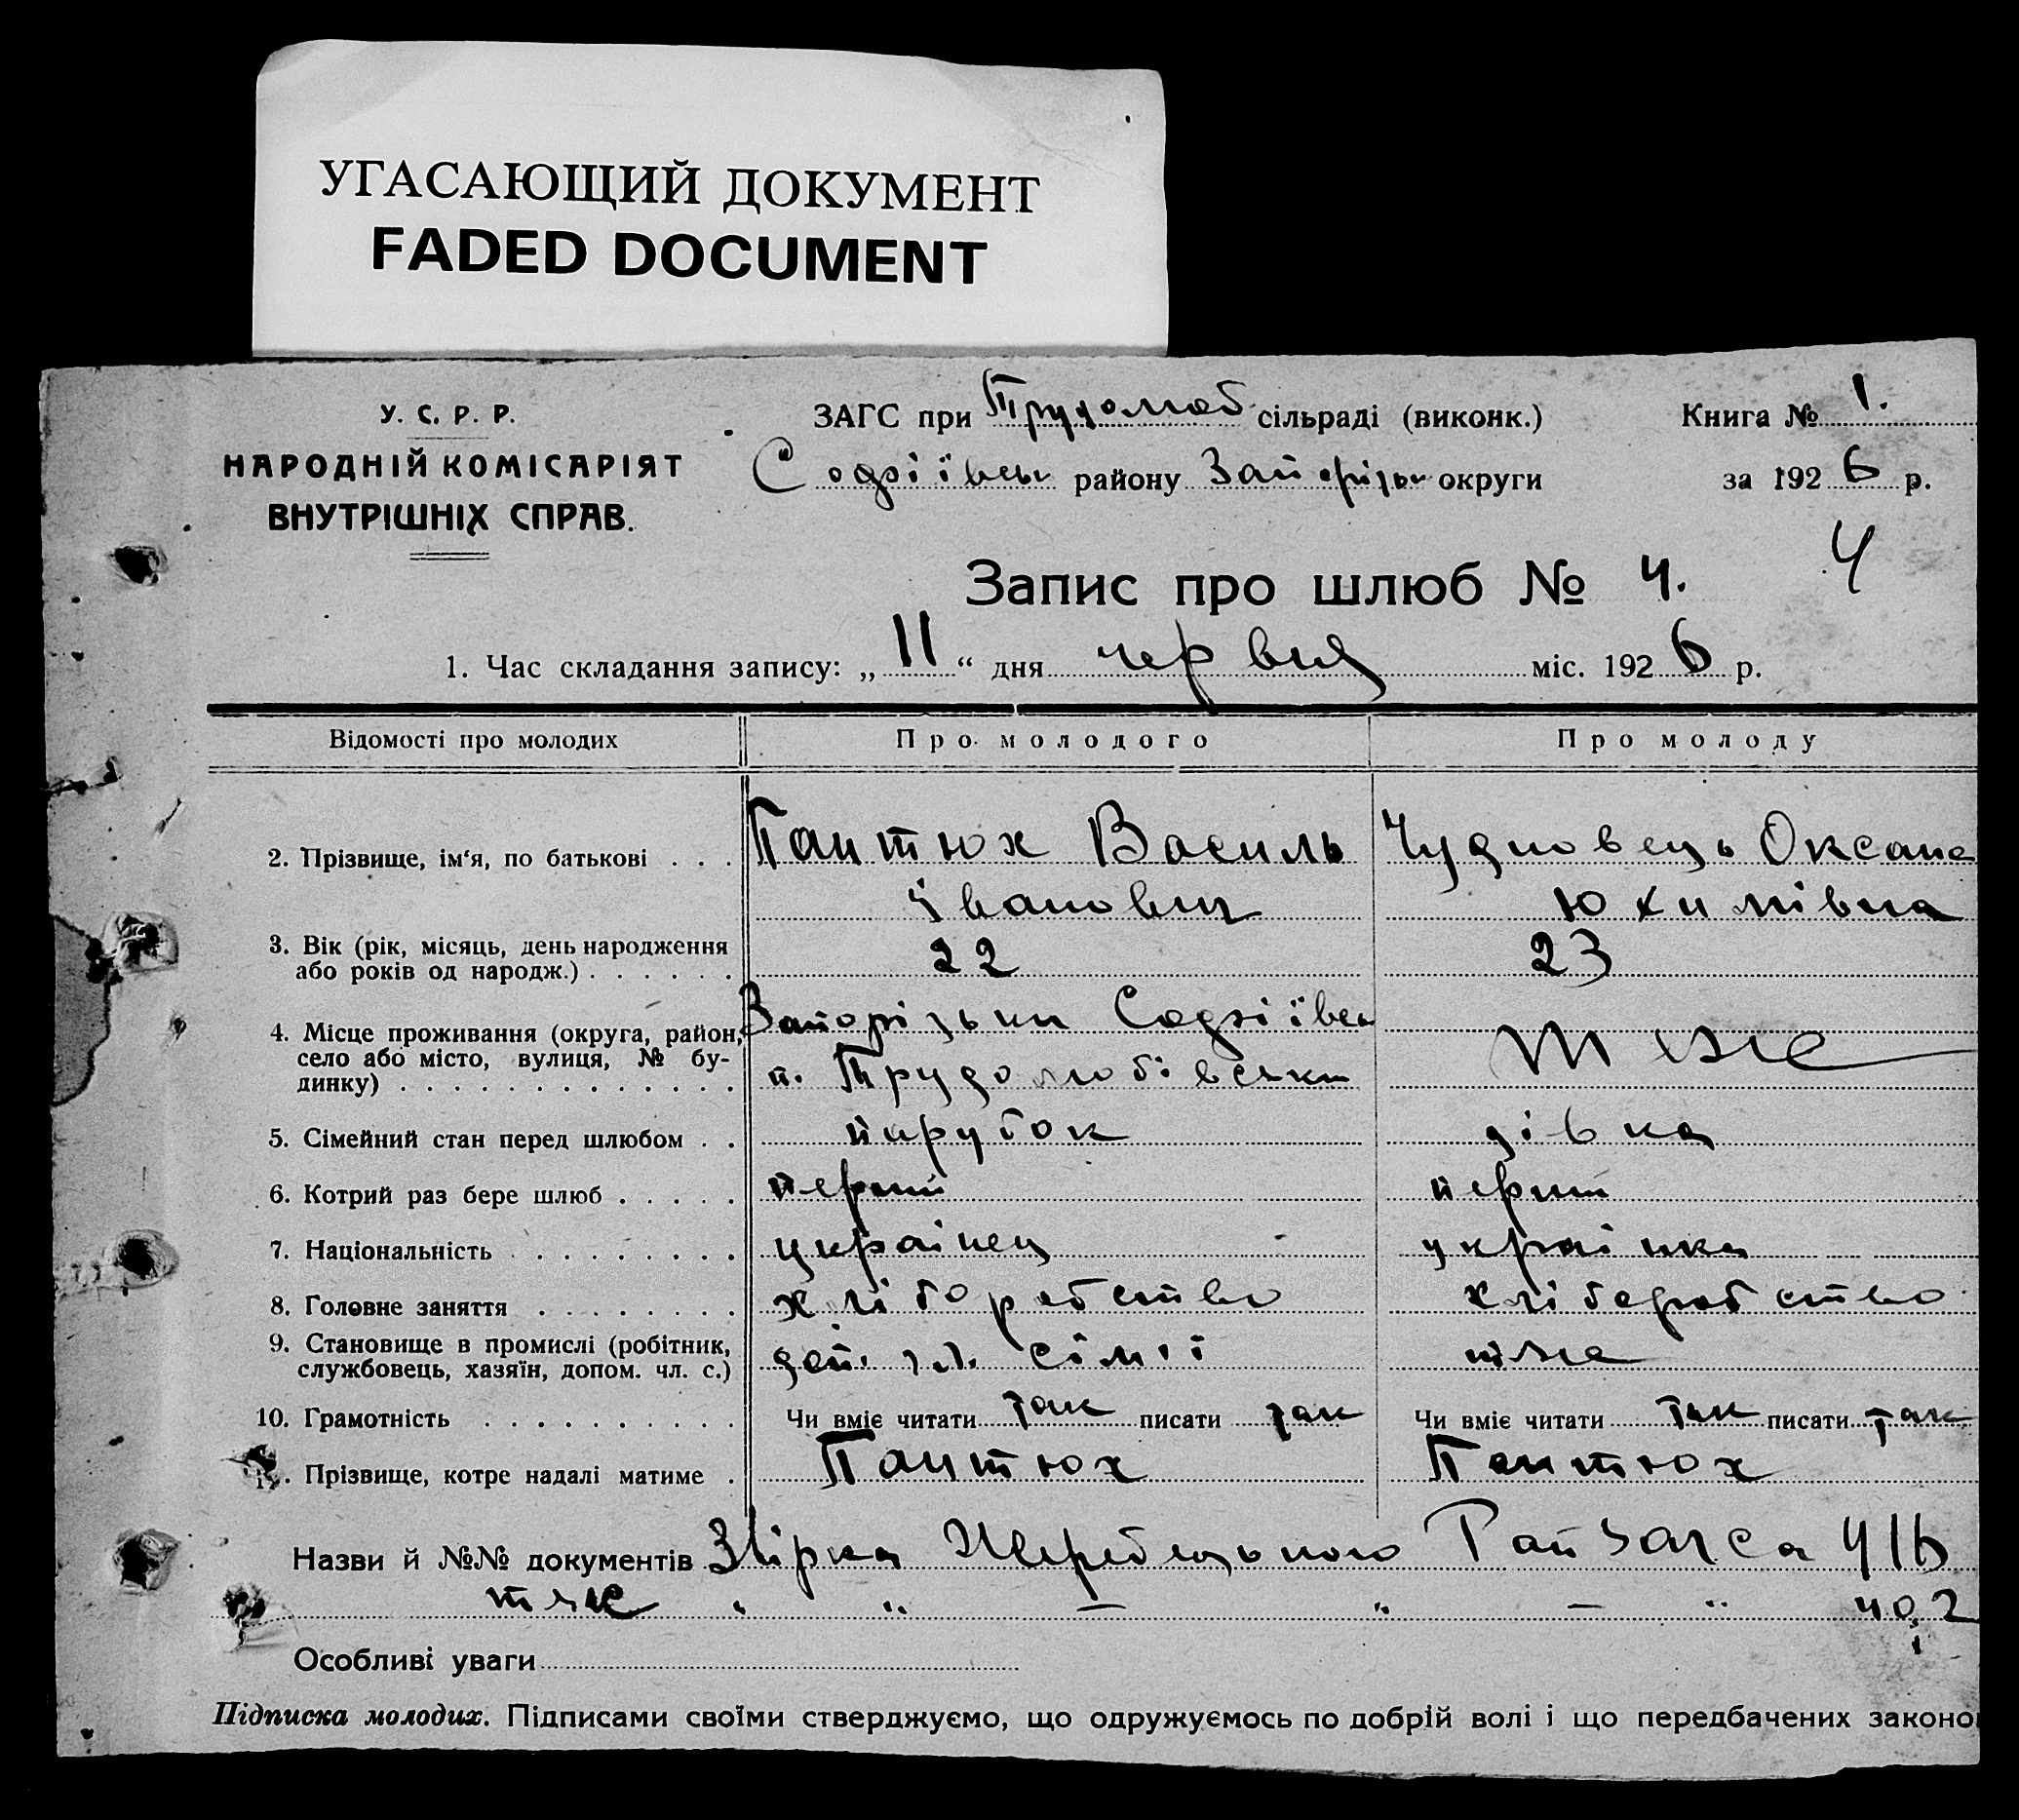 УГАСАЮЩИЙ ДОКУМЕНТ
FADED DOCUMENT
У. С. Р. Р.
НАРОДНІЙ КОМІСАРІЯТ
ВНУТРІШНІХ СПРАВ.
ЗАГС при Трудолюб сільраді (виконк.)
Софіївськ району Запорізьк округи
Книга № 1.
за 1926 р.
4
Запис про шлюб № 4.
1. Час складання запису: „11“ дня червня міс. 1926 р.
Відомості про молодих Про молодого Про молоду
2. Прізвище, ім‘я, по батькові . . . Пантюх Василь Чудновець Оксана
Іванович Юхимівна
3. Вік (рік, місяць, день народження
або років од народж.) . . . . . . 22 23
4. Місце проживання (округа, район, Запорізьки Софіївськ
село або місто, вулиця, № бу- теже
динку) . . . . . . . . . . . . . Трудолюбівськи
5. Сімейний стан перед шлюбом . . парубок дівка
6. Котрий раз бере шлюб . . . . . перший перший
7. Національність . . . . . . . . . українец українка
8. Головне заняття . . . . . . . . хліборобство хліборобство
9. Становище в промислі (робітник,
службовець, хазяїн, допом. чл. с.) доп. чл. сімії теже
10. Грамотність . . . . . . . . . . Чи вміє читати так писати так Чи вміє читати так писати так
. Прізвище, котре надалі матиме . Пантюх Пантюх
Назви й №№ документів Звірка Жеребецького Райзагса 416
теж " " — " — " 402
Особливі уваги
Підписка молодих. Підписами своїми стверджуємо, що одружуємось по добрій волі і що передбачених законо